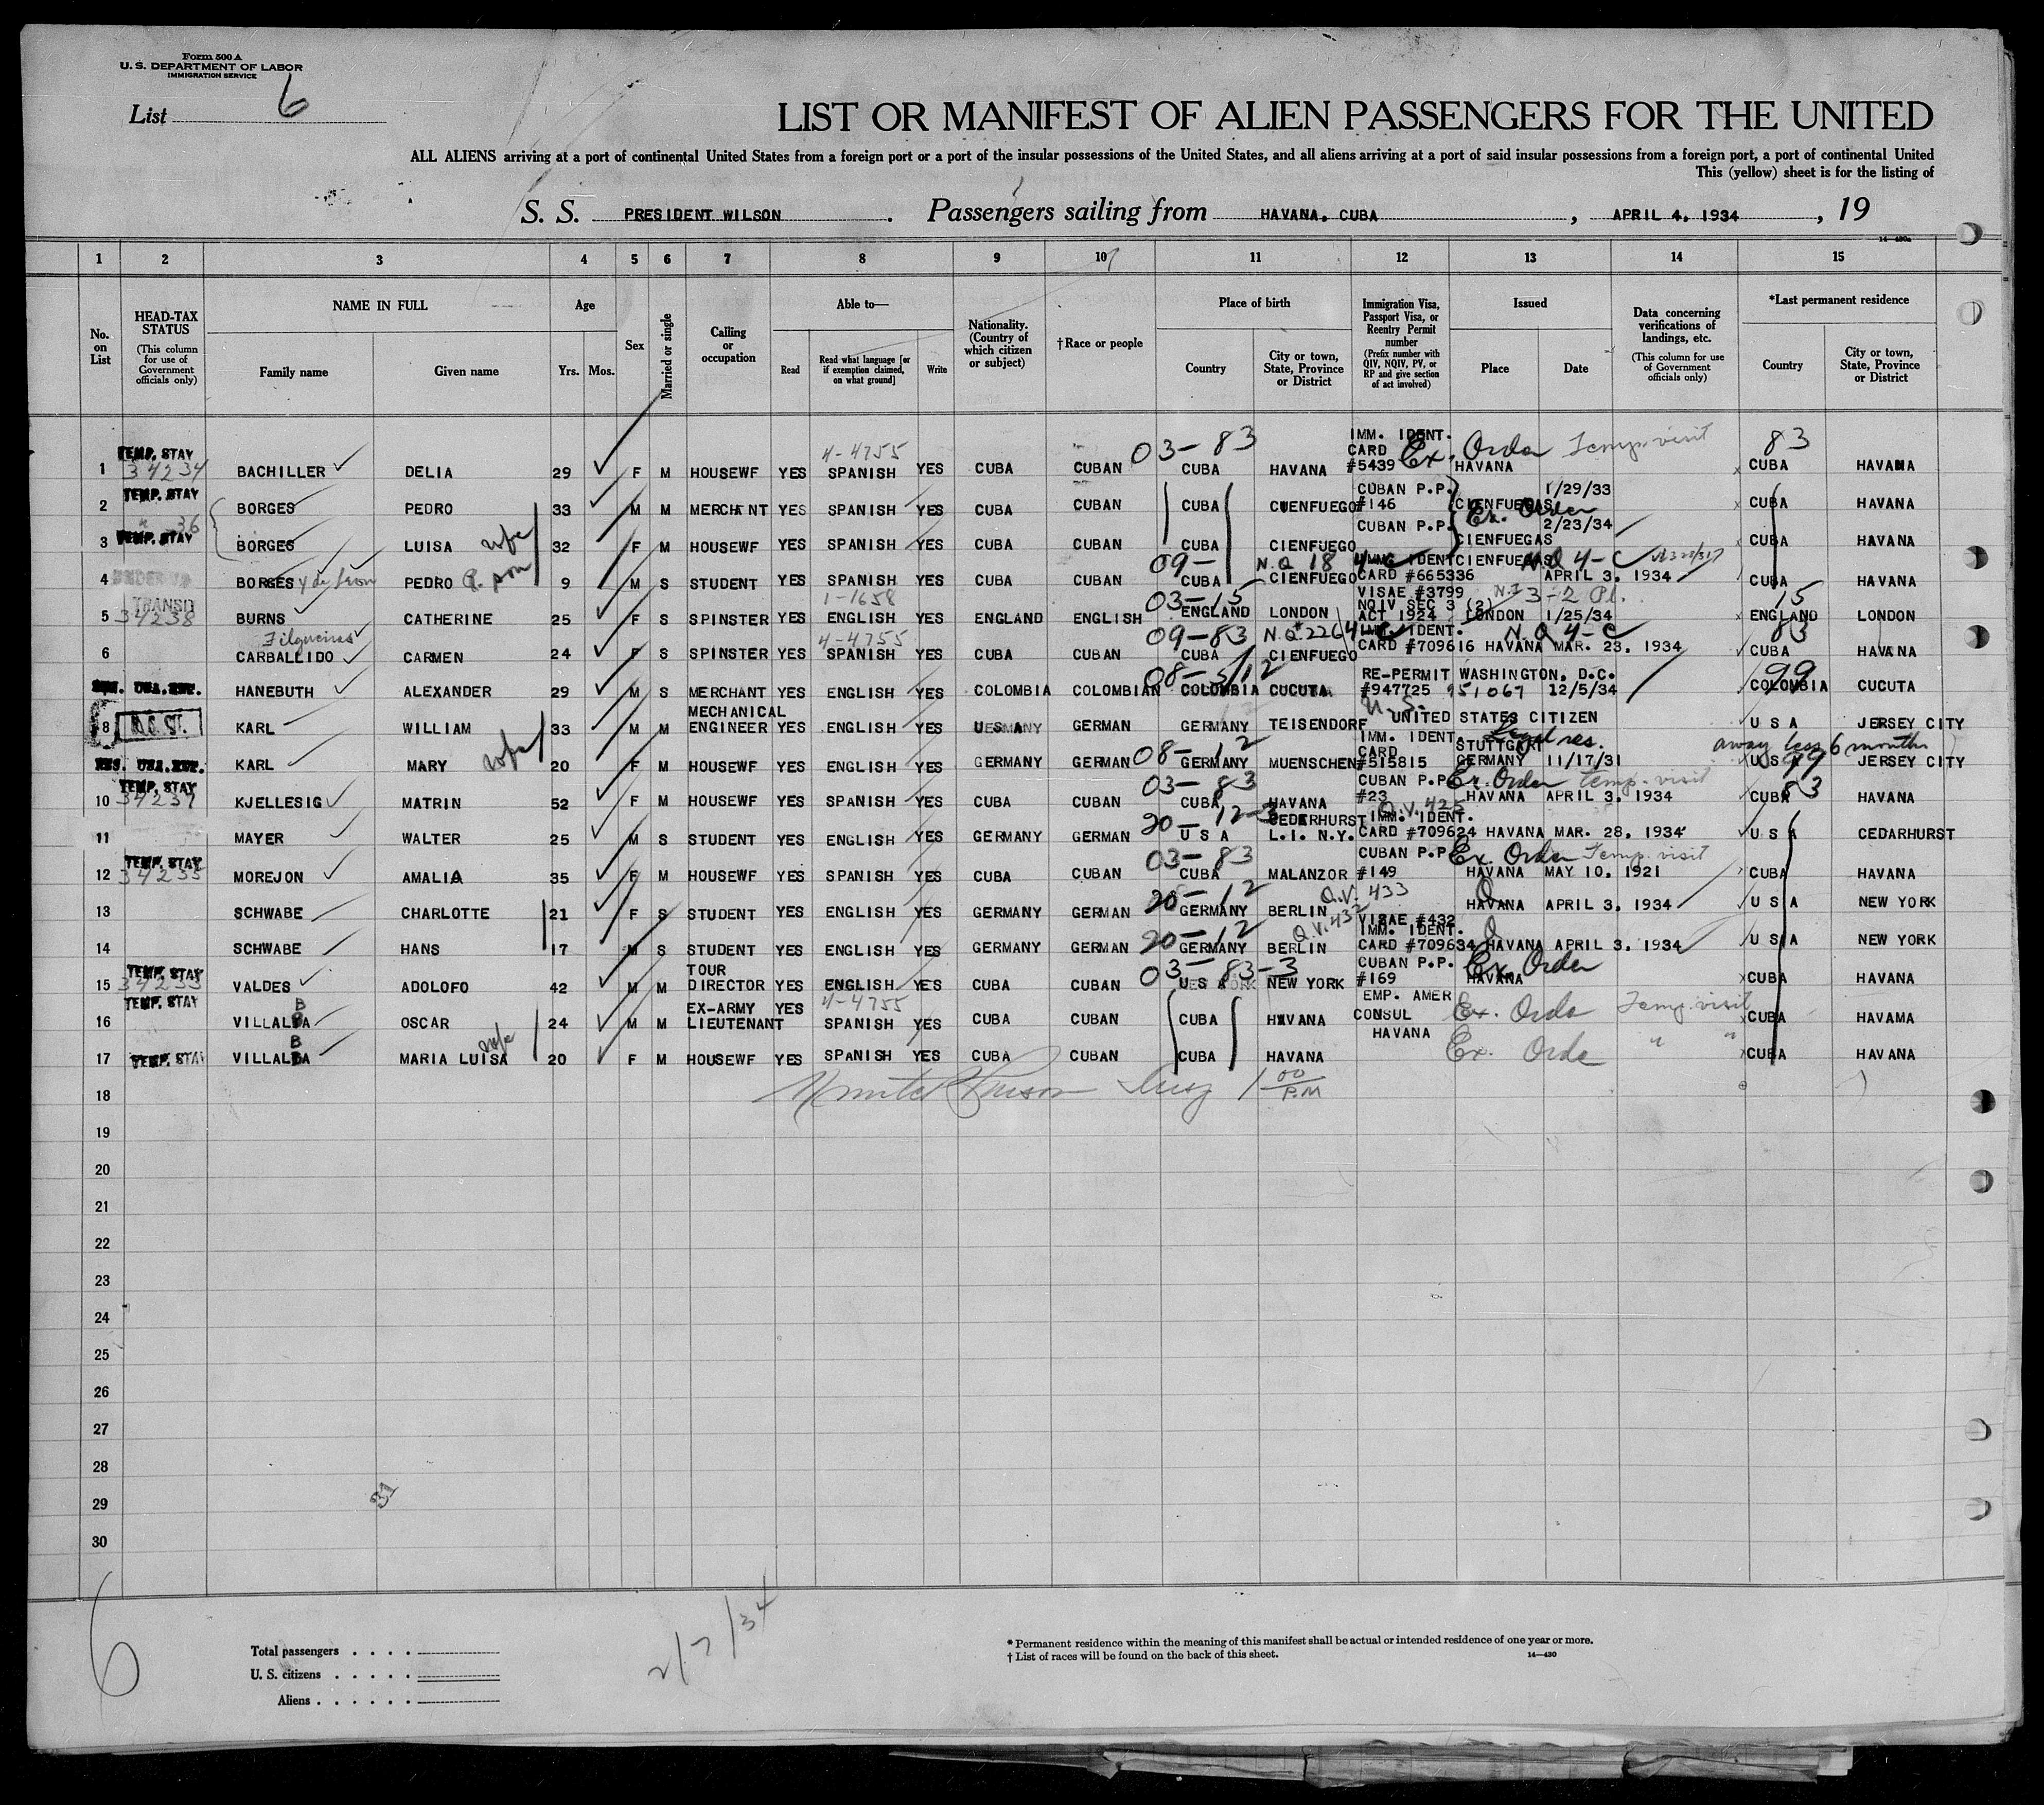 Form 500 A
U. S. DEPARTMENT OF LABOR
IMMIGRATION SERVICE
List 6
LIST OR MANIFEST OF ALIEN PASSENGERS FOR THE UNITED
ALL ALIENS arriving at a port of continental United States from a foreign port or a port of the insular possessions of the United States, and all aliens arriving at a port of said insular possessions from a foreign port, a port of continental United
This (yellow) sheet is for the listing of
S. S. PRESIDENT WILSON. Passengers sailing from HAVANA. CUBA, APRIL 4, 1934, 19
14—430a
1 2 3 4 5 6 7 8 9 10 11 12 13 14 15
No. on List
HEAD-TAX STATUS (This column for use of Government officials only)
NAME IN FULL
Family name Given name
Age
Yrs. Mos.
Sex
Married or single
Calling or occupation
Able to—
Read Read what language [or if exemption claimed, on what ground] Write
Nationality. (Country of which citizen or subject)
† Race or people
Place of birth
Country City or town, State, Province or District
Immigration Visa, Passport Visa, or Reentry Permit number (Prefix number with QIV, NQIV, PV, or RP and give section of act involved)
Issued
Place Date
Data concerning verifications of landings, etc. (This column for use of Government officials only)
*Last permanent residence
Country City or town, State, Province or District
TEMP. STAY 4-4755 03-83 IMM. IDENT. CARD Ex. Order Temp. visit 83
1 34234 BACHILLER DELIA 29 F M HOUSEWF YES SPANISH YES CUBA CUBAN CUBA HAVANA #5439 HAVANA CUBA HAVANA
TEMP. STAY CUBAN P.P. 1/29/33
2 BORGES PEDRO 33 M M MERCHANT YES SPANISH YES CUBA CUBAN CUBA CIENFUEGO #146 CIENFUEGAS CUBA HAVANA
" 36 CUBAN P.P. Ex. Order 2/23/34
3 TEMP. STAY BORGES LUISA wife 32 F M HOUSEWF YES SPANISH YES CUBA CUBAN CUBA CIENFUEGO CIENFUEGAS CUBA HAVANA
09- N.Q 18 4-C IMM. IDENT CIENFUEGAS N.Q 4-C
4 BORGES y de Leon PEDRO son 9 M S STUDENT YES SPANISH YES CUBA CUBAN CUBA CIENFUEGO CARD #665336 APRIL 3. 1934 CUBA HAVANA
TRANSIT 1-1658 03-15 VISAE #3799 NQIV SEC 3 (2) 3-2 15
5 34238 BURNS CATHERINE 25 F S SPINSTER YES ENGLISH YES ENGLAND ENGLISH ENGLAND LONDON ACT 1924 LONDON 1/25/34 ENGLAND LONDON
Filgueiras 4-4755 09-83 N.Q. 2264 IMM. IDENT. N.Q 4-C 83
6 CARBALLIDO CARMEN 24 F S SPINSTER YES SPANISH YES CUBA CUBAN CUBA CIENFUEGO CARD #709616 HAVANA MAR. 23. 1934 CUBA HAVANA
08- 12 RE-PERMIT WASHINGTON, D.C. 99
HANEBUTH ALEXANDER 29 M S MERCHANT YES ENGLISH YES COLOMBIA COLOMBIAN COLOMBIA CUCUTA #947725 951067 12/5/34 COLOMBIA CUCUTA
MECHANICAL U.S.
8 U.S. CIT. KARL WILLIAM 33 M M ENGINEER YES ENGLISH YES U S A GERMAN GERMANY TEISENDORF UNITED STATES CITIZEN U S A JERSEY CITY
08- 12 IMM. IDENT. CARD STUTTGART Legal res. away less 6 months
KARL MARY wife 20 F M HOUSEWF YES ENGLISH YES GERMANY GERMAN GERMANY MUENSCHEN #515815 GERMANY 11/17/31 U S A 99 JERSEY CITY
TEMP. STAY 03-83 CUBAN P.P Ex. Order Temp. visit
10 34237 KJELLESIG MATRIN 52 F M HOUSEWF YES SPANISH YES CUBA CUBAN CUBA HAVANA #23 HAVANA APRIL 3. 1934 CUBA 83 HAVANA
20-12-3 CEDARHURST Q.V. 425 IMM. IDENT.
11 MAYER WALTER 25 M S STUDENT YES ENGLISH YES GERMANY GERMAN U S A L.I. N.Y. CARD #709624 HAVANA MAR. 28. 1934 U S A CEDARHURST
TEMP. STAY 03-83 CUBAN P.P Ex. Order Temp. visit
12 34235 MOREJON AMALIA 35 F M HOUSEWF YES SPANISH YES CUBA CUBAN CUBA MALANZOR #149 HAVANA MAY 10. 1921 CUBA HAVANA
20-12 Q.V. 433 Q
13 SCHWABE CHARLOTTE 21 F S STUDENT YES ENGLISH YES GERMANY GERMAN GERMANY BERLIN HAVANA APRIL 3. 1934 U S A NEW YORK
20-12 Q.V. 432 VISAE #432 IMM. IDENT.
14 SCHWABE HANS 17 M S STUDENT YES ENGLISH YES GERMANY GERMAN GERMANY BERLIN CARD #709634 HAVANA APRIL 3. 1934 U S A NEW YORK
TEMP. STAY TOUR 03-83-3 CUBAN P.P. Ex. Order
15 34233 VALDES ADOLOFO 42 M M DIRECTOR YES ENGLISH YES CUBA CUBAN U S A NEW YORK #169 HAVANA CUBA HAVANA
TEMP. STAY B EX-ARMY YES 4-4755 EMP. AMER
16 VILLALBA OSCAR 24 M M LIEUTENANT SPANISH YES CUBA CUBAN CUBA HAVANA CONSUL Ex. Order Temp. visit CUBA HAVAMA
B HAVANA
17 TEMP. STAY VILLALBA MARIA LUISA wife 20 F M HOUSEWF YES SPANISH YES CUBA CUBAN CUBA HAVANA Ex. Orde " " CUBA HAVANA
18 1 00 P.M
19
20
21
22
23
24
25
26
27
28
29
30
6
Total passengers
U. S. citizens
Aliens
* Permanent residence within the meaning of this manifest shall be actual or intended residence of one year or more.
† List of races will be found on the back of this sheet.
14—430